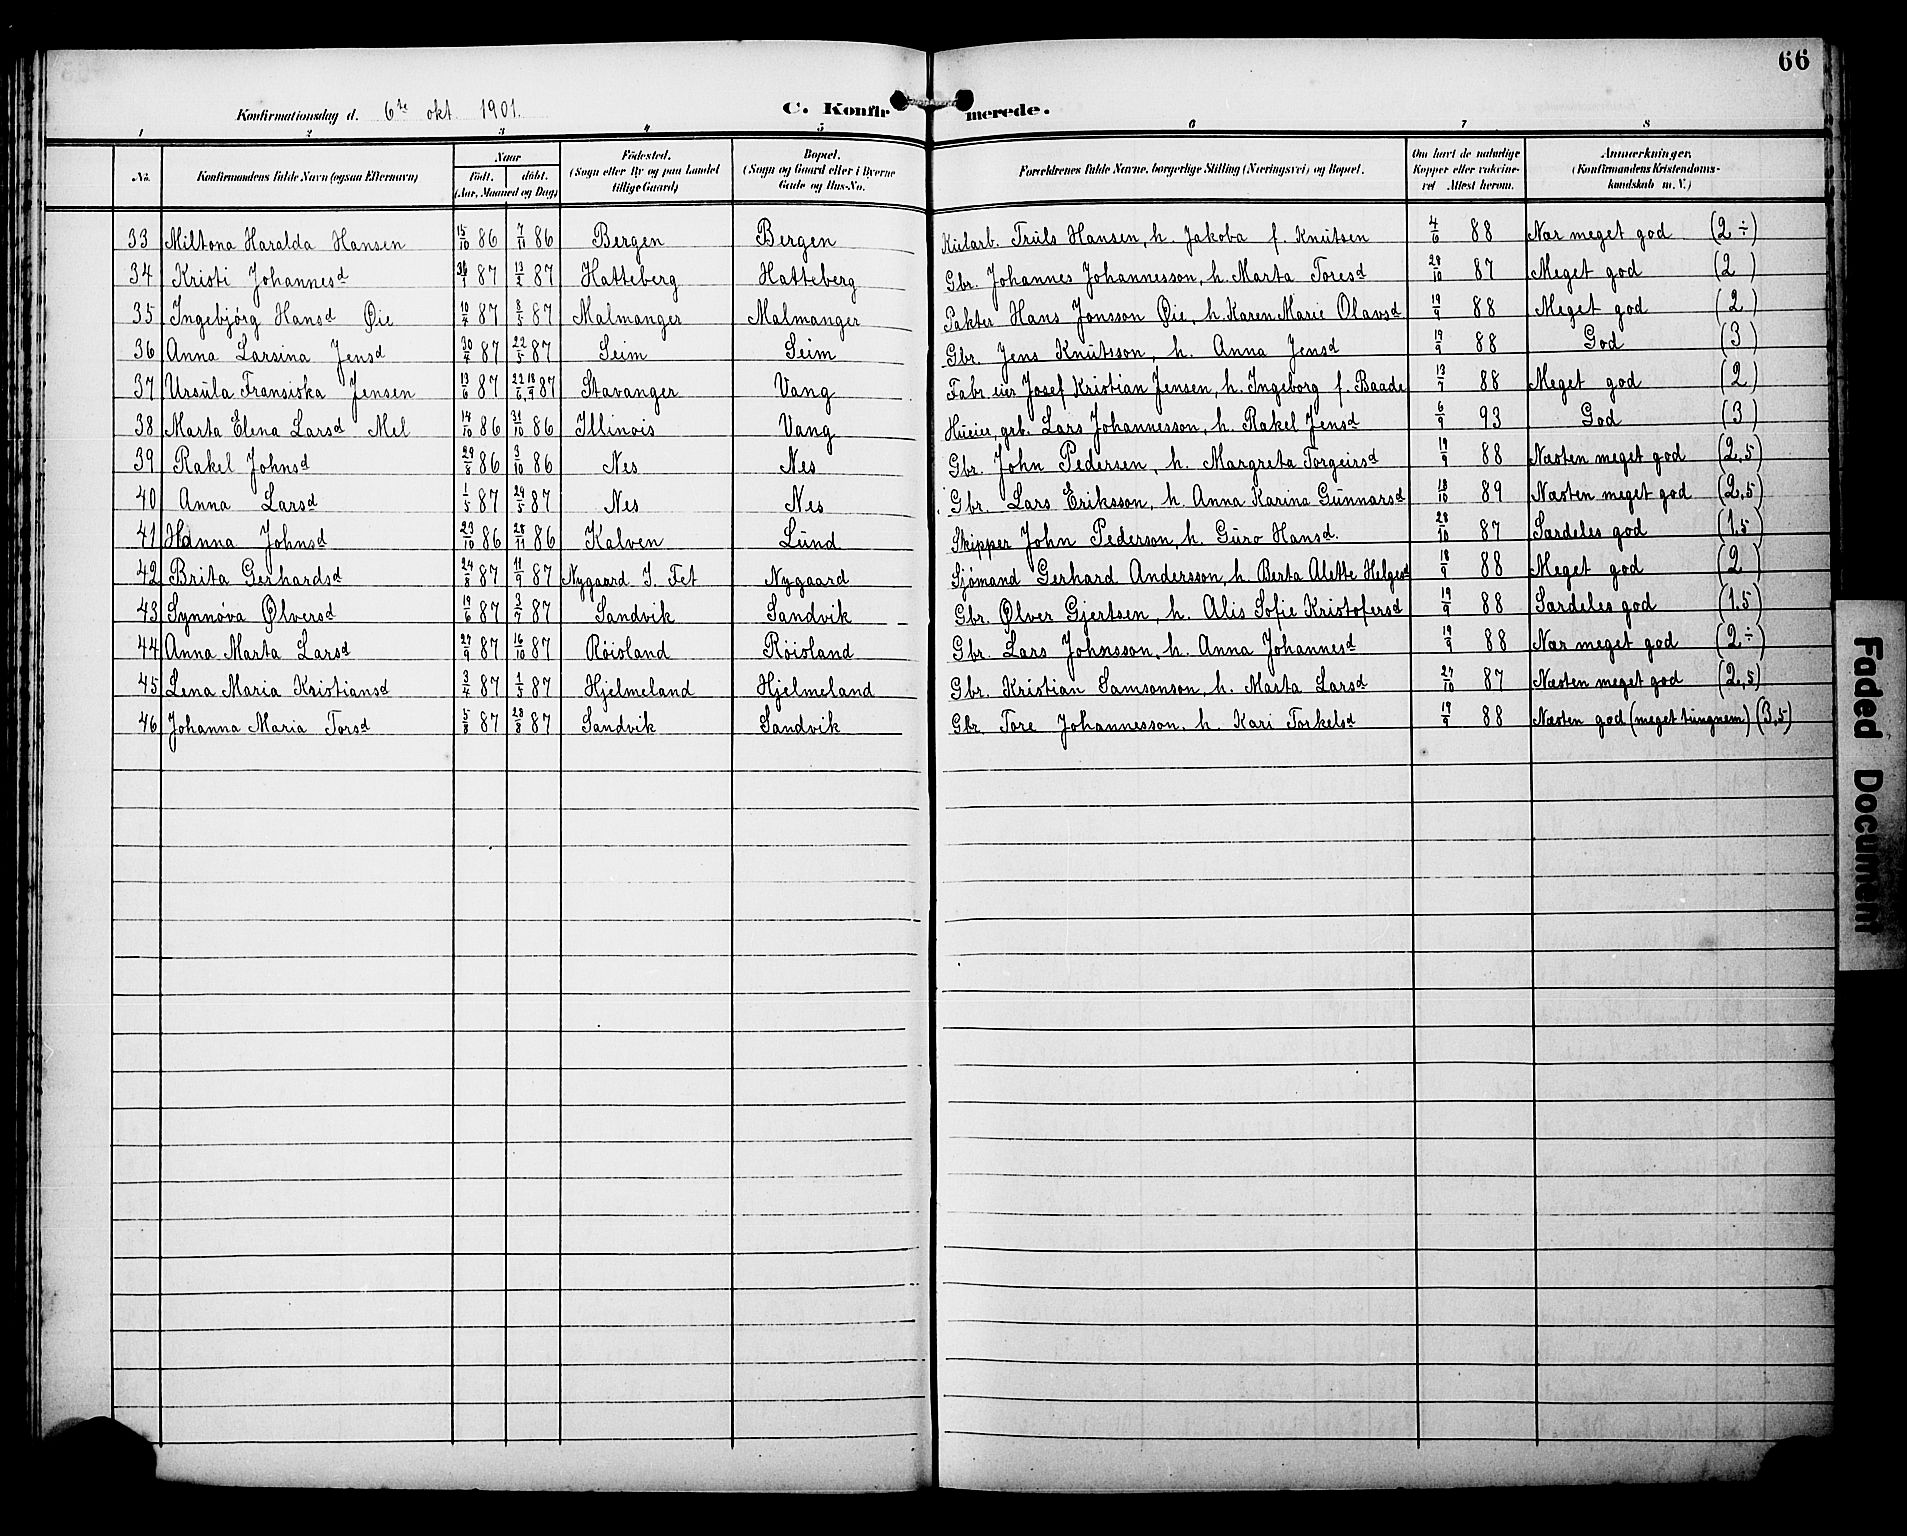 66
Konfirmationsdag d. 6te okt 1901. C. Konfirmerede.
1 2 3 4 5 6 7 8
No. Konfirmandens fulde Navn (ogsaa Efternavn) Naar Født. døbt. (Aar, Maaned og Dag) Fødested. (Sogn eller By og paa Landet tillige Gaard) Bopæl. (Sogn og Gaard eller i Byerne Gade og Hus-No. Forældrenes fulde Navne, borgerlige Stilling (Næringsvei) og Bopæl. Om havt de naturlige Kopper eller vakcineret. Attest herom. Anmærkninger. (Konfirmandens Kristendomskundskab m. V.)
33 Miltona Haralda Hansen 15/10 86 7/11 86 Bergen Bergen Truls Hansen, h. Jakoba f. Knutsen 4/6 88 Nær meget god (2÷)
34 Kristi Johannesd 87 13/2 87 Hatteberg Hatteberg Gbr. Johannes Johannesson, h. Marta Toresd 28/10 87 Meget god (2)
35 Ingebjörg Hansd Øie 10/4 87 8/5 87 Malmanger Malmanger Pakter Hans Jonsson Øie, h. Karen Marie Olavsd 19/9 88 Meget god (2)
36 Anna Larsina Jensd 30/4 87 22/5 87 Seim Seim Gbr. Jens Knutsson, h. Anna Jensd 19/9 88 God (3)
37 Ursula Fransiska Jensen 13/6 87 22/6 18/9 87 Stavanger Vang Fabr.eier Josef Kristian Jensen, h. Ingeborg f. Baade 13/9 88 Meget god (2)
38 Marta Elena Larsd Mel 14/10 86 31/10 86 Illinois Vang Huseier, grb. Lars Johannesson, h. Rakel Jensd 6/9 93 God (3)
39 Rakel Johnsd 29/8 86 3/10 86 Nes Nes Gbr. John Pedersen, h. Margreta Torgeirsd 19/9 88 Næsten meget god (2,5)
40 Anna Larsd 1/5 87 29/5 87 Nes Nes Gbr. Lars Eriksson, h. Anna Karina Gunnarsd 18/10 89 Næsten meget god (2,5)
41 Hanna Johnsd 23/10 86 28/11 86 Kalven Lund Skipper John Pederson, h. Guro Hansd. 28/10 87 Særdeles god (1.5)
42 Brita Gerhardsd 24/8 87 11/9 87 Nygaard I. Fet Nygaard Sjømand Gerhard Andersson, h. Berta Alette Helgesd 18/9 88 Meget god (2)
43 Synnøva Ølversd 19/6 87 3/7 87 Sandvik Sandvik Gbr. Ølver Gjertsen, h. Alis Sofie Kristofersd 19/9 88 Særdeles god (1.5)
44 Anna Marta Larsd 27/9 87 16/10 87 Röisland Röisland Gbr. Lars Johnsson, h. Anna Johannesd 19/9 88 Nær meget god (2÷)
45 Lena Maria Kristiansd 3/4 87 1/5 87 Hjelmeland Hjelmeland Gbr. Kristian Samsonson, h. Marta Larsd 27/10 87 Næsten meget god (2,5)
46 Johanna Maria Torsd 5/8 87 28/8 87 Sandvik Sandvik Gbr. Tore Johannesson, h. Kari Torkelsd 19/9 88 Næsten god (meget tungnem) (3,5)
Faded Document